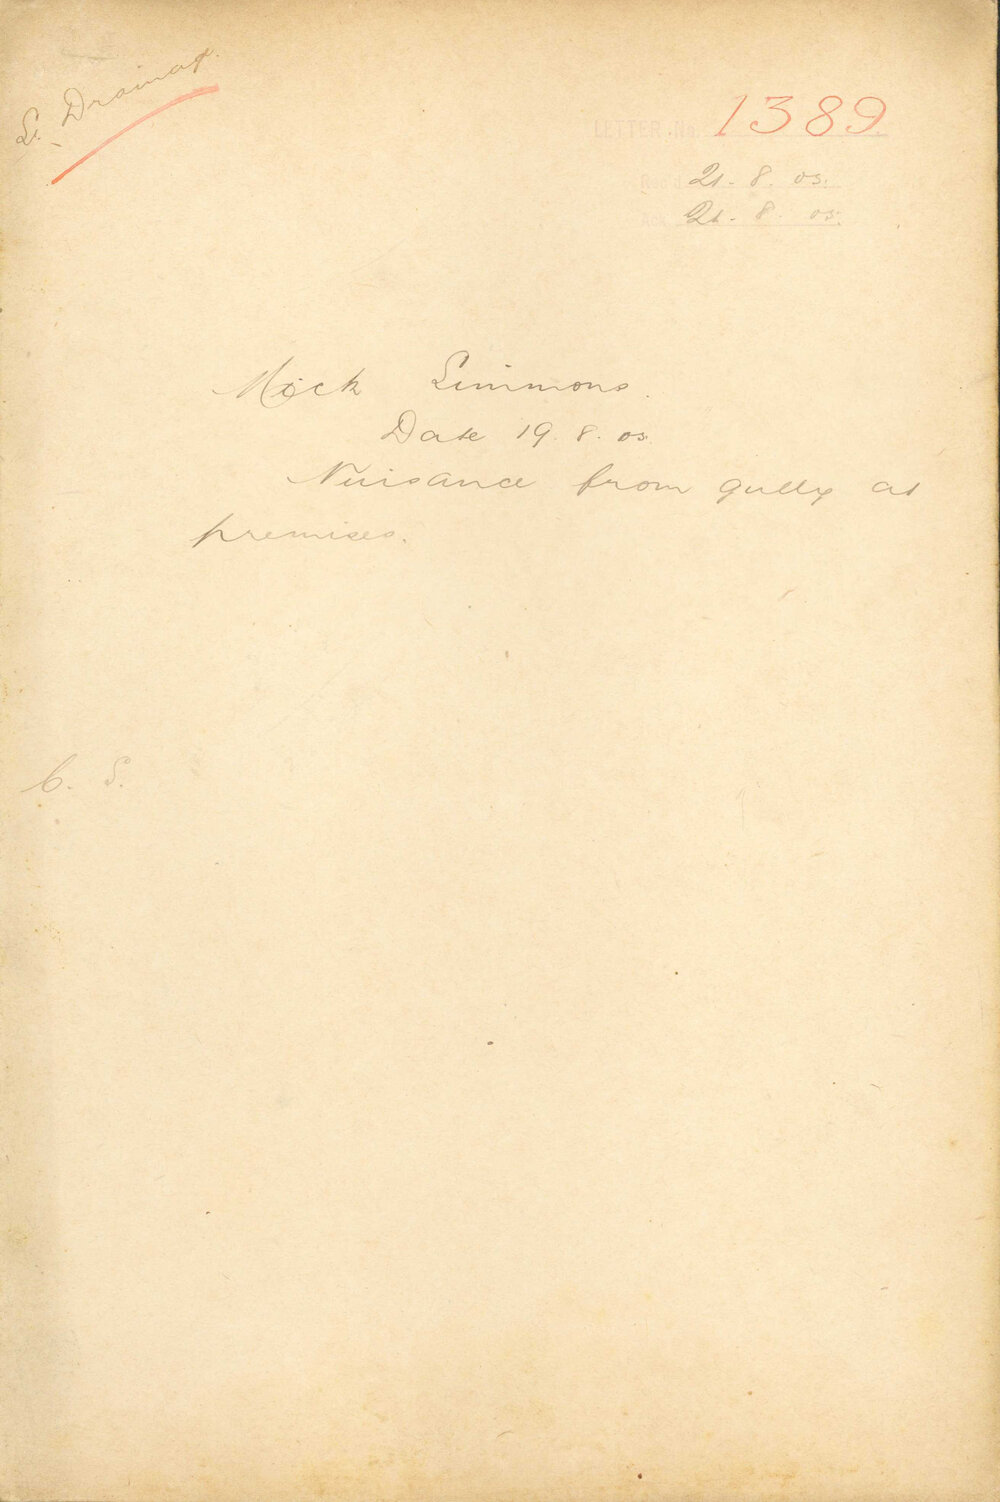 St. Drainage.
LETTER No. 1389
Rec'd 21. 8. 03.
Ack. 21. 8. 03.
Mick Simmons.
Date 19. 8. 03
Nuisance from gully at
premises.
C. S.